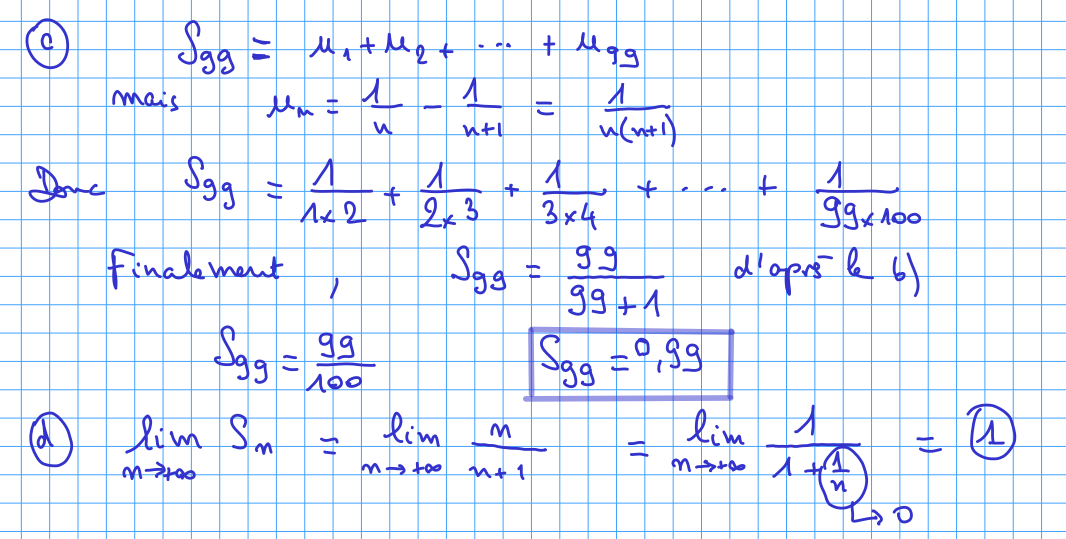 c S₉₉ = μ₁ + μ₂ + ... + μ₉₉
mais μₙ = 1/n - 1/(n+1) = 1/(n(n+1))
Donc S₉₉ = 1/(1×2) + 1/(2×3) + 1/(3×4) + ... + 1/(99×100)
Finalement, S₉₉ = 99/(99+1) d'après le b)
S₉₉ = 99/100 S₉₉ = 0,99
d lim n→+∞ Sₙ = lim n→+∞ n/(n+1) = lim n→+∞ 1/(1+1/n) = 1
→ 0